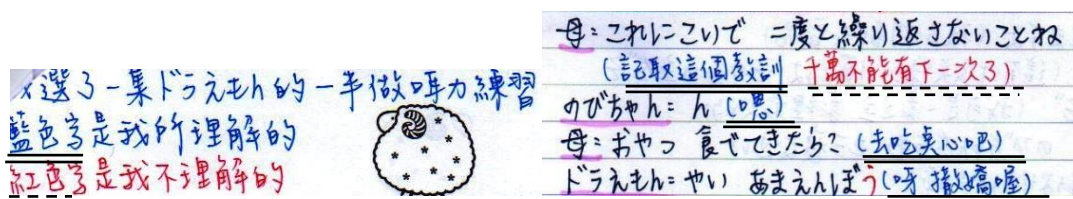 選了一集ドラえもん的一半做聽力練習
藍色字是我所理解的
紅色字是我不理解的
母:これにこいで 二度と繰り返さないことね
(記取這個教訓 千萬不能有下一次了)
のびちゃん:ん(嗯)
母:おやつ 食べてきたら?(去吃點心吧)
ドラえもん:やい あまえんぼう(呀 撒嬌喔)